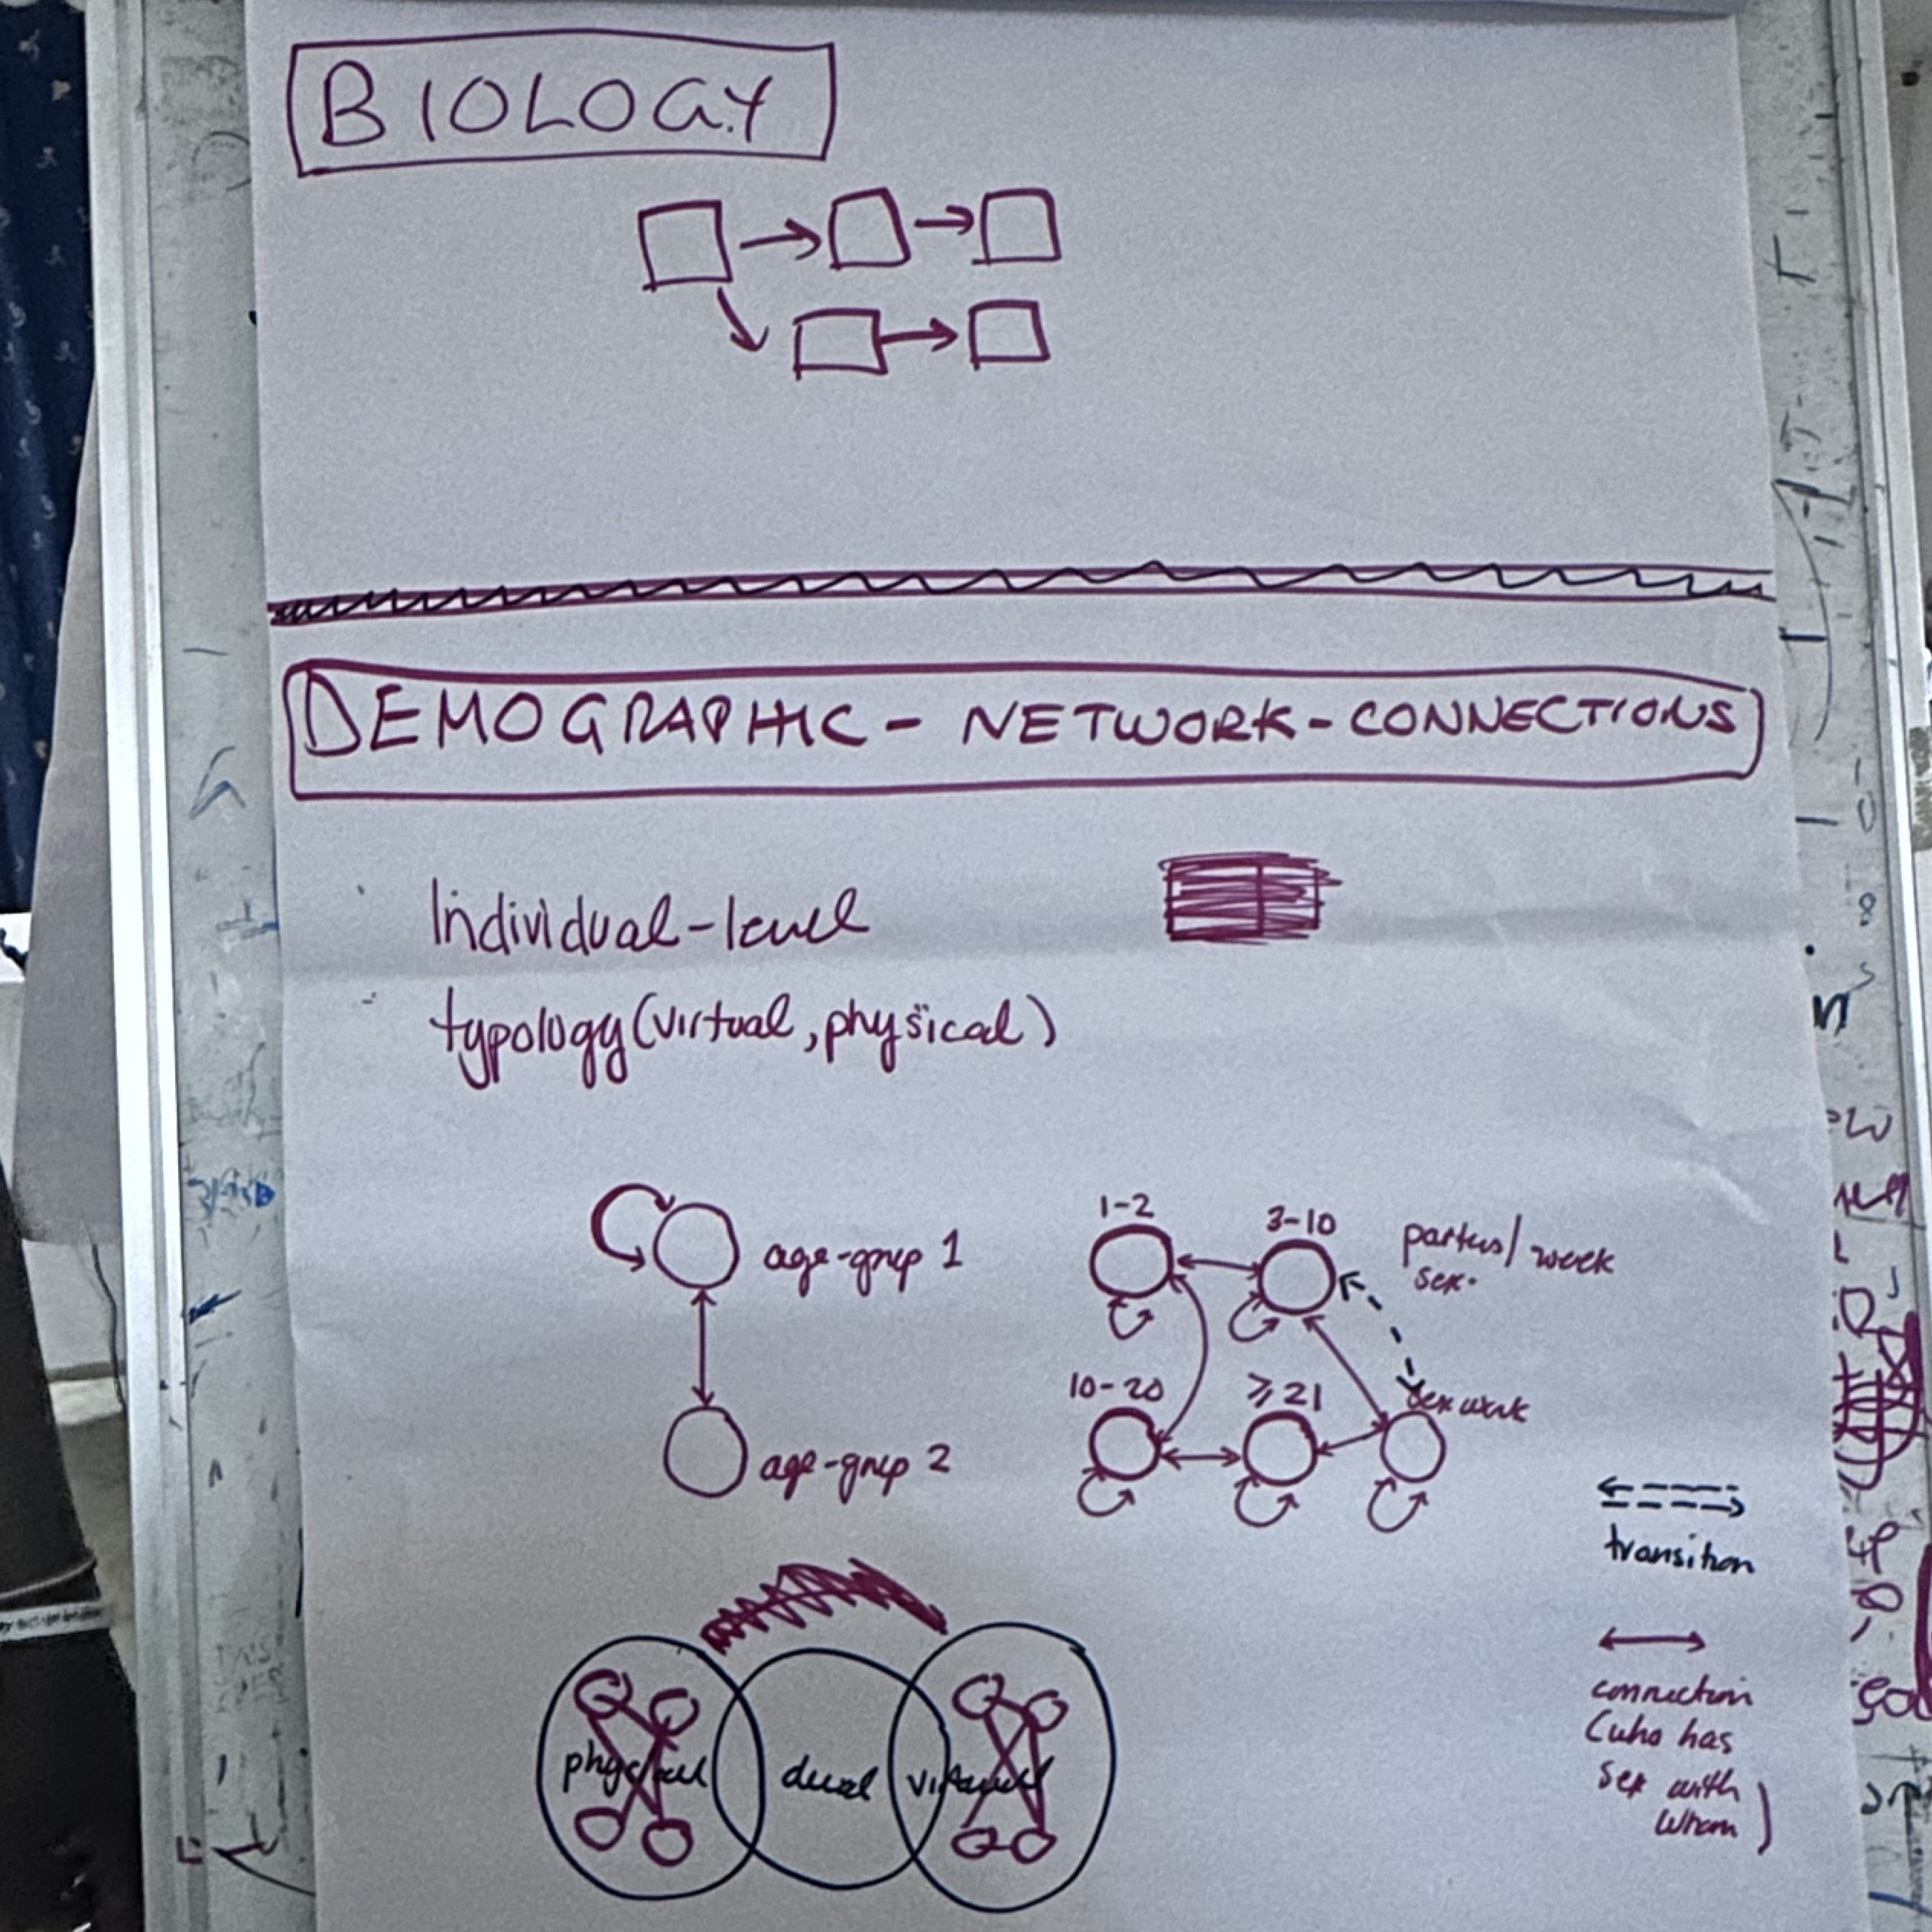 BIOLOGY
DEMOGRAPHIC - NETWORK - CONNECTIONS
Individual-level
typology (virtual, physical)
age-group 1
age-group 2
1-2
3-10
/ week
sex.
10-20
≥ 21
sex work
transition
connection
(who has
sex with
whom)
physical
dual
virtual